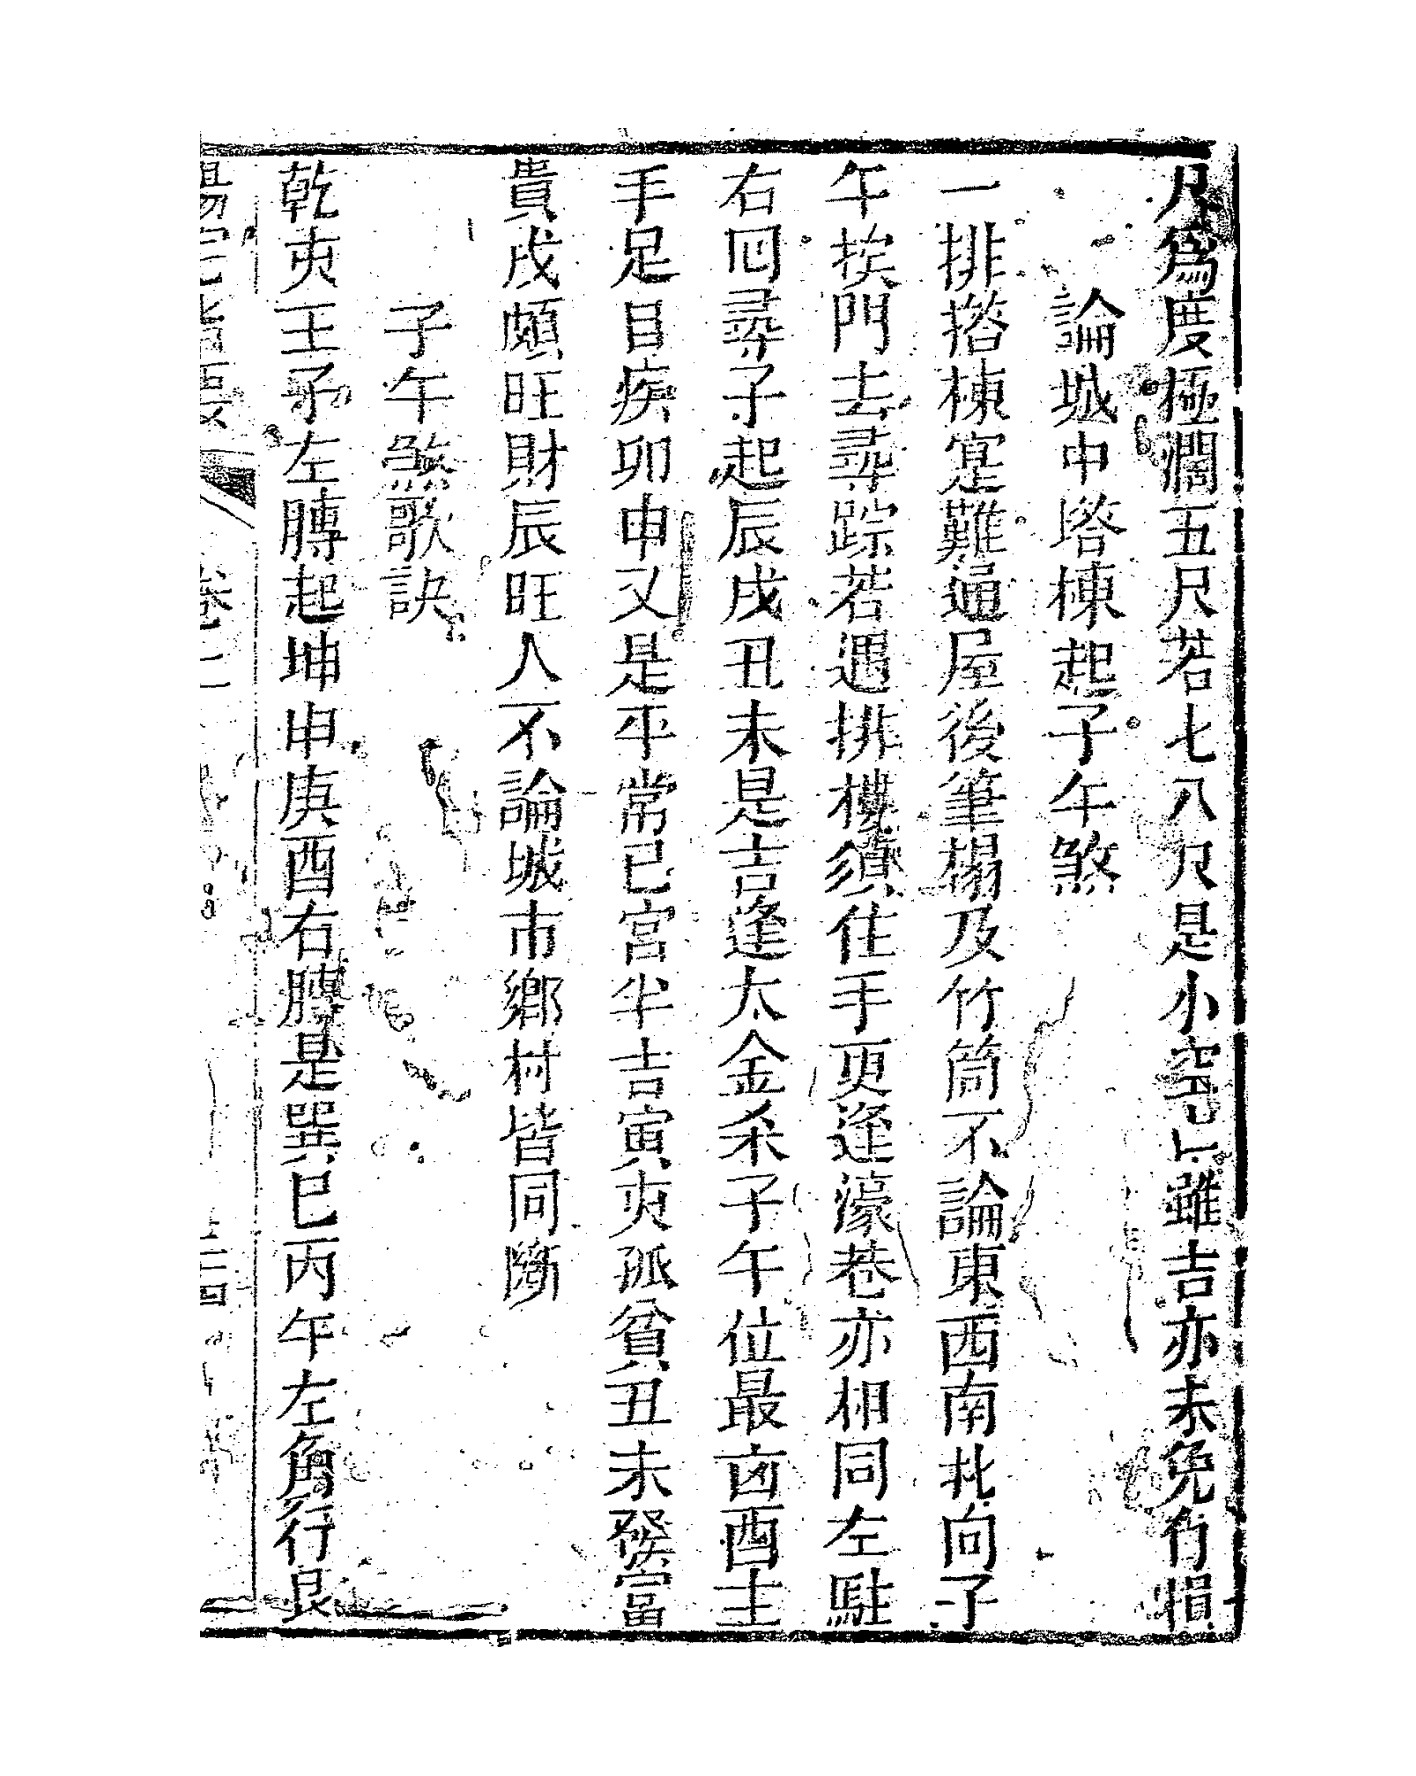 尺爲度極濶五尺若七八尺是小空亡雖吉亦未免有損
論城中塔棟起子午煞
一排搭棟寔難通屋後筆榻及竹筒不論東西南北向子
午挨門去尋踪若遇排樓須住手更逢濠巷亦相同左駐
右回尋子起辰戌丑未是吉逢太金杀子午位最凶酉主
手足目疾卯申又是平常巳宮半吉寅亥孤貧丑未發富
貴戌頗旺財辰旺人不論城市鄉村皆同斷
子午煞歌訣
乾亥壬子左膞起坤申庚酉右膞是巽巳丙午左角行艮
陽宅指要
卷二